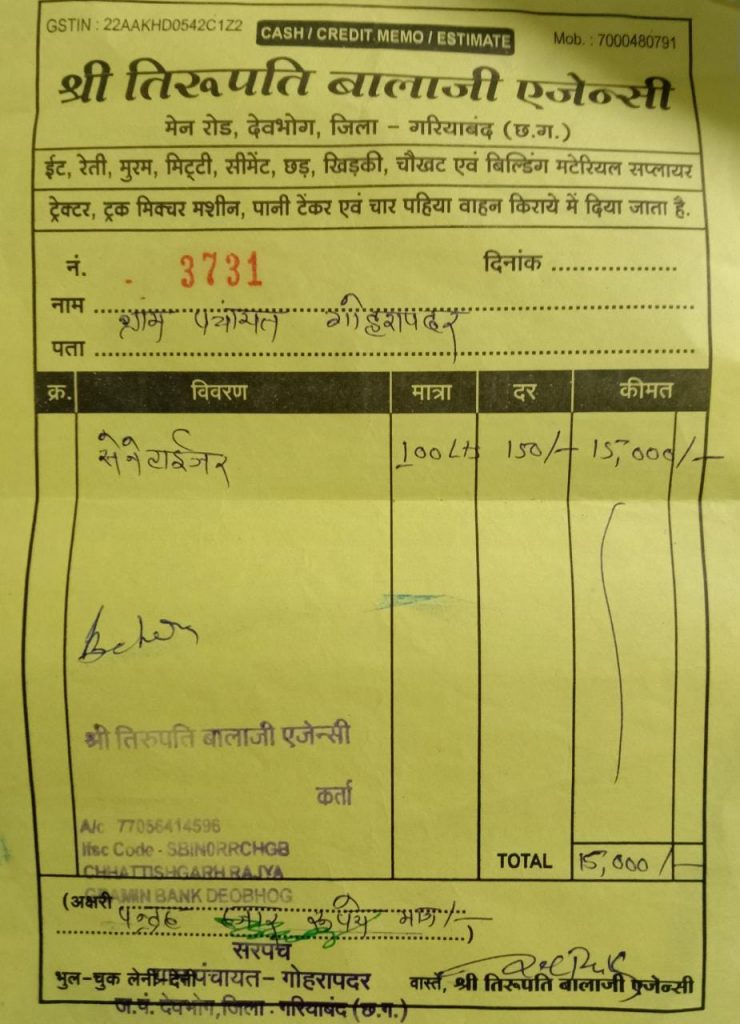 GSTIN : 22AAKHD0542C1Z2 CASH / CREDIT MEMO / ESTIMATE Mob. : 7000480791
श्री तिरूपति बालाजी एजेन्सी
मेन रोड, देवभोग, जिला - गरियाबंद (छ.ग.)
ईट, रेती, मुरम, मिट्टी, सीमेंट, छड़, खिड़की, चौखट एवं बिल्डिंग मटेरियल सप्लायर
ट्रेक्टर, ट्रक मिक्चर मशीन, पानी टेंकर एवं चार पहिया वाहन किराये में दिया जाता है.
नं. 3731 दिनांक ..................
नाम ग्राम पंचायत गोहरापदर
पता
क्र. विवरण मात्रा दर कीमत
सेनेटाईजर 100 Lts 150/- 15,000/-
श्री तिरुपति बालाजी एजेन्सी
कर्ता
A/c 77056414596
Ifsc Code - SBIN0RRCHGB
CHHATTISHGARH RAJYA
GRAMIN BANK DEOBHOG
TOTAL 15,000/-
(अक्षरी पन्द्रह हजार रूपये मात्र/-
)
सरपंच
भुल-चुक लेनी-देनी पंचायत- गोहरापदर वास्ते, श्री तिरूपति बालाजी एजेन्सी
ज.पं. देवभोग,जिला- गरियाबंद (छ.ग.)